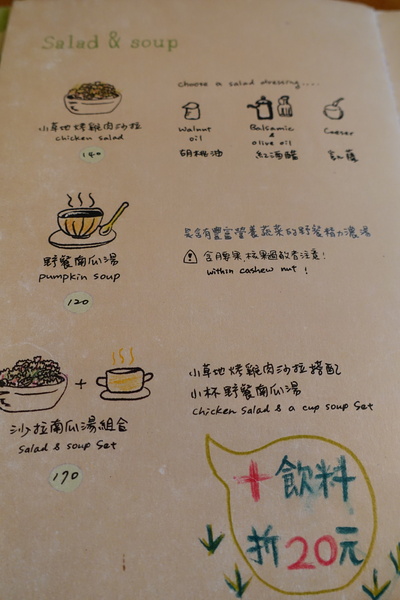 Salad & soup
choose a salad dressing....
小草地烤雞肉沙拉
chicken salad
140
Walnut oil
胡桃油
Balsamic & olive oil
紅酒醋
Caesar
凱薩
野餐南瓜湯
pumpkin soup
120
含有豐富營養蔬菜的野餐精力濃湯
含腰果,核果過敏者注意!
within cashew nut !
+
沙拉南瓜湯組合
Salad & soup Set
170
小草地烤雞肉沙拉搭配
小杯野餐南瓜湯
chicken salad & a cup soup Set
+飲料
折20元